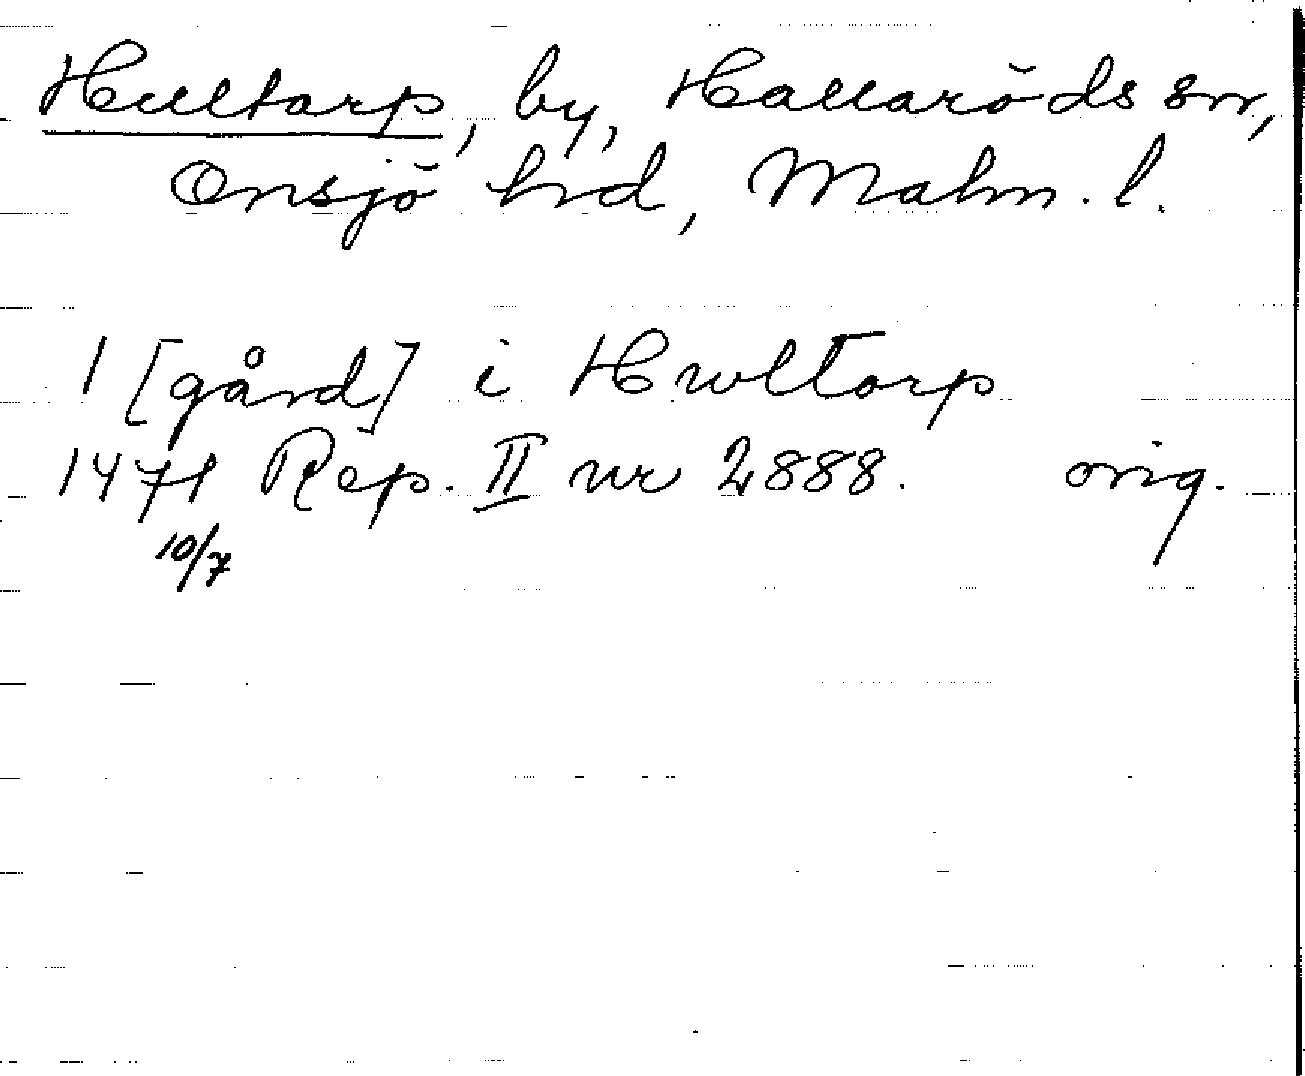 Hultarp, by, Hallaröds sn,
Onsjö hd, Malm. l.
1 [gård] i Hwltorp
1471 Rep. II nr 2888. orig.
10/7